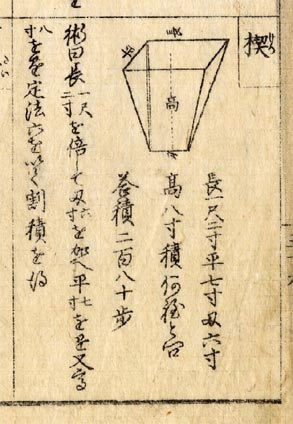 楔
高
長一尺二寸平七寸刄六寸
高八寸積何程と問
答積二百八十歩
術曰長一尺二寸を倍して刄六寸を加へ平七寸を乗又高
八寸を乗定法六を以て割積を得